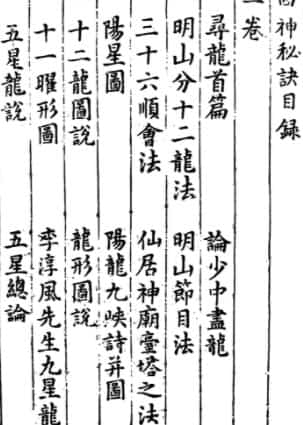 神秘訣目録
卷
尋龍首篇 論少中盡龍
明山分十二龍法 明山節目法
三十六順會法 仙居神廟臺塔之法
陽星圖 陽龍九峽詩并圖
十二龍圖說 龍形圖說
十一曜形圖 李淳風先生九星龍
五星龍說 五星總論